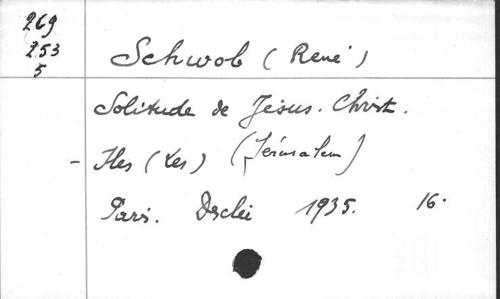 269
253
5
Schwob (René)
Solitude de Jésus. Christ.
- Iles (Les) (Jérusalem)
Paris. Desclée 1935. 16.